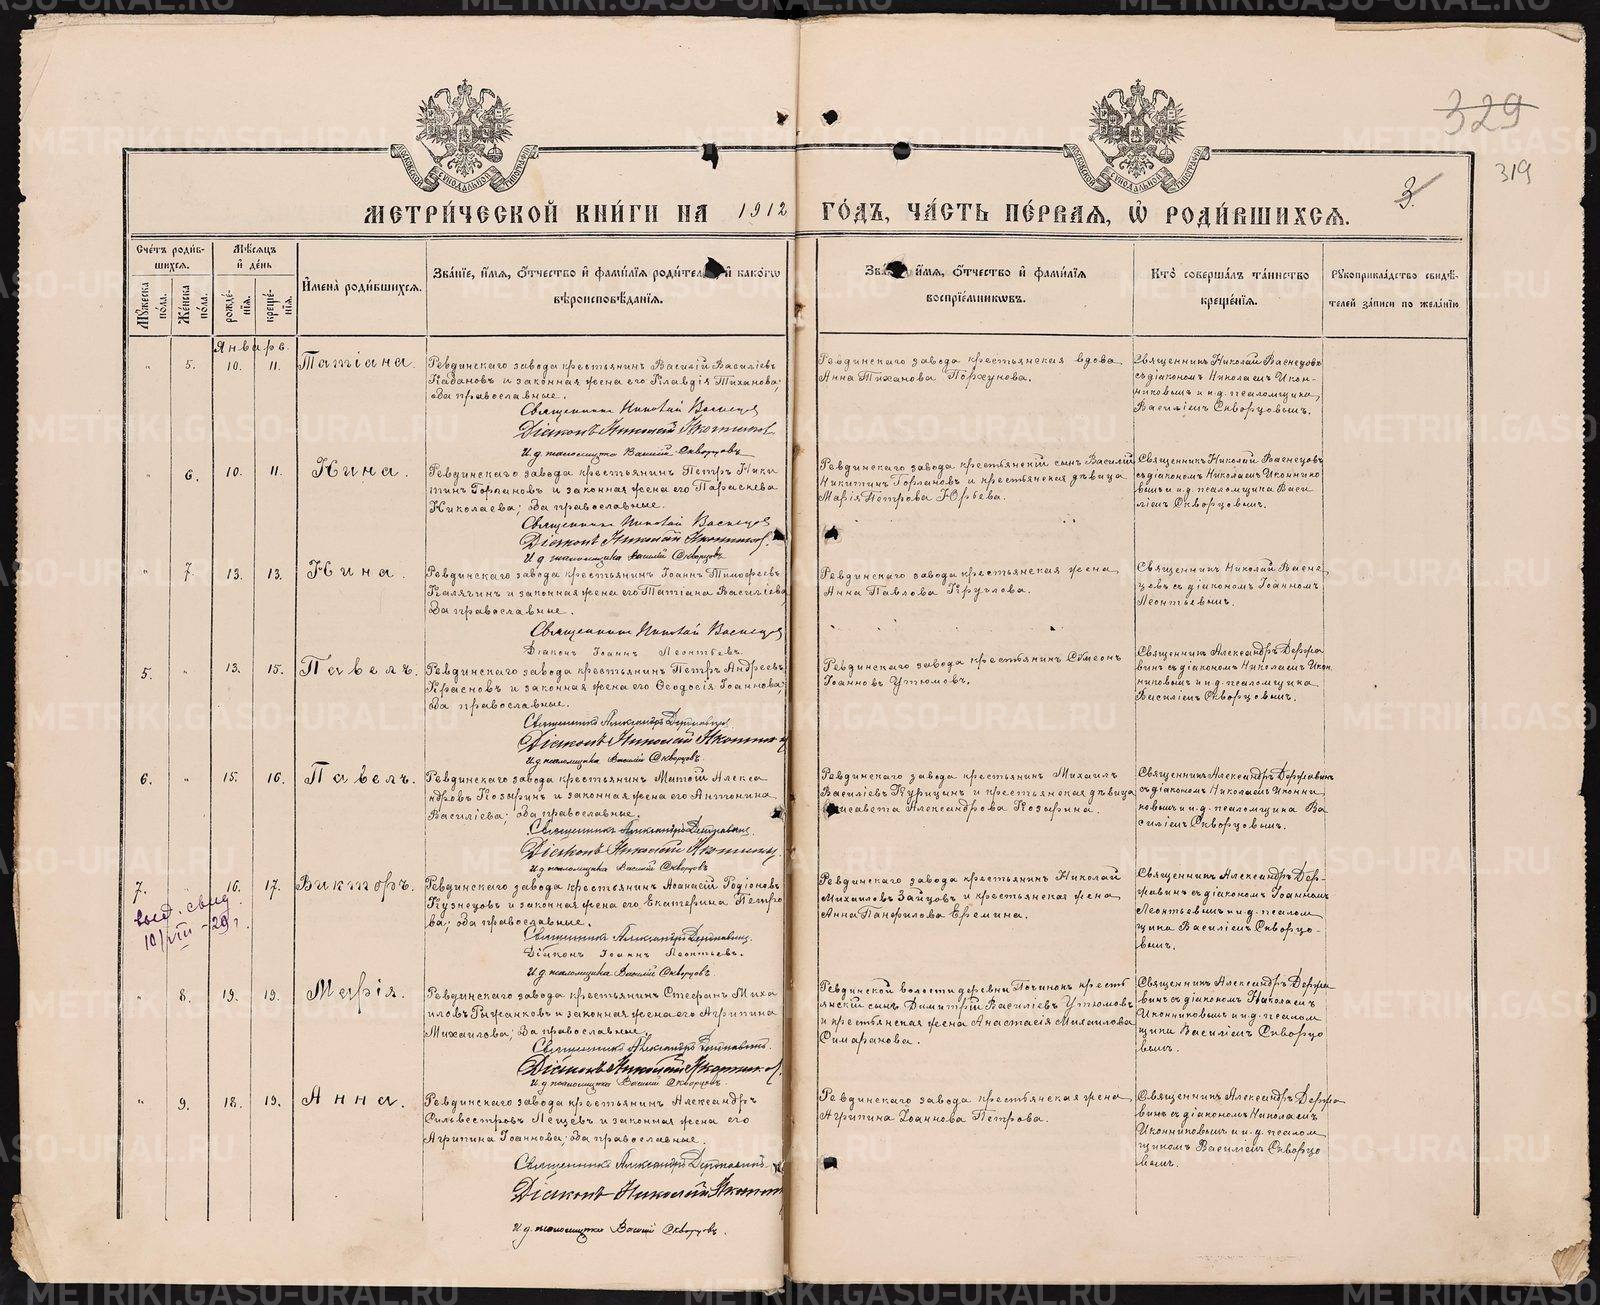 329
319
3.
МЕТРИ́ЧЕСКОЙ КНИ́ГИ НА 1912 ГО́ДЪ, ЧА́СТЬ ПЕ́РВАЯ, Ѡ РОДИ́ВШИХСЯ.
Счетъ роди́вшихся.
Му́жеска по́ла.
Же́нска по́ла.
Мѣ́сяцъ и де́нь
рожде́нїя.
креще́нїя.
Имена̀ роди́вшихся.
Зва́нїе, и́мя, о́тчество и фами́лїя роди́телей и како́гѡ
вѣроисповѣ́данїя.
Зва́нїе, и́мя, о́тчество и фами́лїя
воспрїе́мникѡвъ.
Кто̀ соверша́лъ та́инство
креще́нїя.
Рꙋкоприкла́дство свидѣ́-
телей за́писи по жела́нїю
Январь.
" 5. 10. 11. Татіана.
Ревдинскаго завода крестьянинъ Василій Василіевъ
Кабановъ и законная жена его Клавдія Тиханова;
оба православные.
Священникъ Николай Васнецов
Діаконъ Николай Иконников
И. д. псаломщика Василий Скворцовъ
Ревдинскаго завода крестьянская вдова
Анна Тиханова Порхунова.
Священникъ Николай Васнецовъ
съ діакономъ Николаемъ Икон-
никовымъ и и.д. псаломщика
Василіемъ Скворцовымъ.
" 6. 10. 11. Нина.
Ревдинскаго завода крестьянинъ Петръ Ники
тинъ Горлановъ и законная жена его Параскева
Николаева; оба православные.
Священникъ Николай Васнецов
Діаконъ Николай Иконников.
И д псаломщика Василий Скворцовъ.
Ревдинскаго завода крестьянскій сынъ Василій
Никитинъ Горлановъ и крестьянская дѣвица
Марія Петрова Юрьева.
Священникъ Николай Васнецовъ
съ діакономъ Николаемъ Иконнико
вымъ и и.д. псаломщика Васи
ліемъ Скворцовымъ.
" 7. 13. 13. Нина.
Ревдинскаго завода крестьянинъ Іоаннъ Тимофеевъ
Калягинъ и законная жена его Татіана Василіева
оба православные.
Священникъ Николай Васнецов
Діаконъ Іоаннъ Леонтьевъ.
Ревдинскаго завода крестьянская жена
Анна Павлова Круглова.
Священникъ Николай Васне-
цовъ съ діакономъ Іоанномъ
Леонтьевымъ.
5. " 13. 15. Павелъ.
Ревдинскаго завода крестьянинъ Петръ Андреевъ
Красновъ и законная жена его Ѳеодосія Іоаннова;
оба православные.
Священникъ Александръ Державин
Діаконъ Николай Иконников
И д псаломщика Василій Скворцовъ.
Ревдинскаго завода крестьянинъ Симеонъ
Іоанновъ Утюмовъ.
Священникъ Александръ Держа
винъ съ діакономъ Николаемъ Икон
никовымъ и и.д. псаломщика
Василіемъ Скворцовымъ.
6. " 15. 16. Павелъ.
Ревдинскаго завода крестьянинъ Матѳій Алекса
ндровъ Козыринъ и законная жена его Антонина
Василіева; оба православные.
Священникъ Александръ Державинъ.
Діаконъ Николай Иконников.
И д псаломщика Василій Скворцовъ
Ревдинскаго завода крестьянинъ Михаилъ
Василіевъ Курицинъ и крестьянская дѣвица
Елисавета Александрова Козырина.
Священникъ Александръ Державинъ
съ діакономъ Николаемъ Иконни
ковымъ и и.д. псаломщика Ва
силіемъ Скворцовымъ.
7. " 16. 17. Викторъ.
выд. свид.
10/VIII - 29 г.
Ревдинскаго завода крестьянинъ Аѳанасій Родіоновъ
Кузнецовъ и законная жена его Екатерина Петро
ва; оба православные.
Священникъ Александръ Державинъ.
Діаконъ Іоаннъ Леонтьевъ.
И д псаломщика Василій Скворцовъ.
Ревдинскаго завода крестьянинъ Николай
Михаиловъ Зайцовъ и крестьянская жена
Анна Панфилова Еремина.
Священникъ Александръ Дер-
жавинъ съ діакономъ Іоанномъ
Леонтьевымъ и и.д. псалом
щика Василіемъ Скворцо-
вымъ.
" 8. 19. 19. Марія.
Ревдинскаго завода крестьянинъ Стефанъ Миха
иловъ Рыжанковъ и законная жена его Агрипина
Михаилова; оба православные.
Священникъ Александръ Державинъ.
Діаконъ Николай Иконников.
И д псаломщика Василій Скворцовъ.
Ревдинской волости деревни Починокъ кресть
янскій сынъ Димитрій Василіевъ Утюмовъ
и крестьянская жена Анастасія Михаилова
Симаранова.
Священникъ Александръ Держа
винъ съ діакономъ Николаемъ
Иконниковымъ и и.д. псалом
щика Василіемъ Скворцо
вымъ.
" 9. 18. 19. Анна.
Ревдинскаго завода крестьянинъ Александръ
Сильвестровъ Лещевъ и законная жена его
Агрипина Іоаннова; оба православные.
Священникъ Александръ Державинъ.
Діаконъ Николай Иконников
И. д. псаломщика Василій Скворцовъ.
Ревдинскаго завода крестьянская жена
Агрипина Іоаннова Петрова.
Священникъ Александръ Держа
винъ съ діакономъ Николаемъ
Иконниковымъ и и.д. псалом
щикомъ Василіемъ Скворцо
вымъ.
METRIKI.GASO-URAL.RU